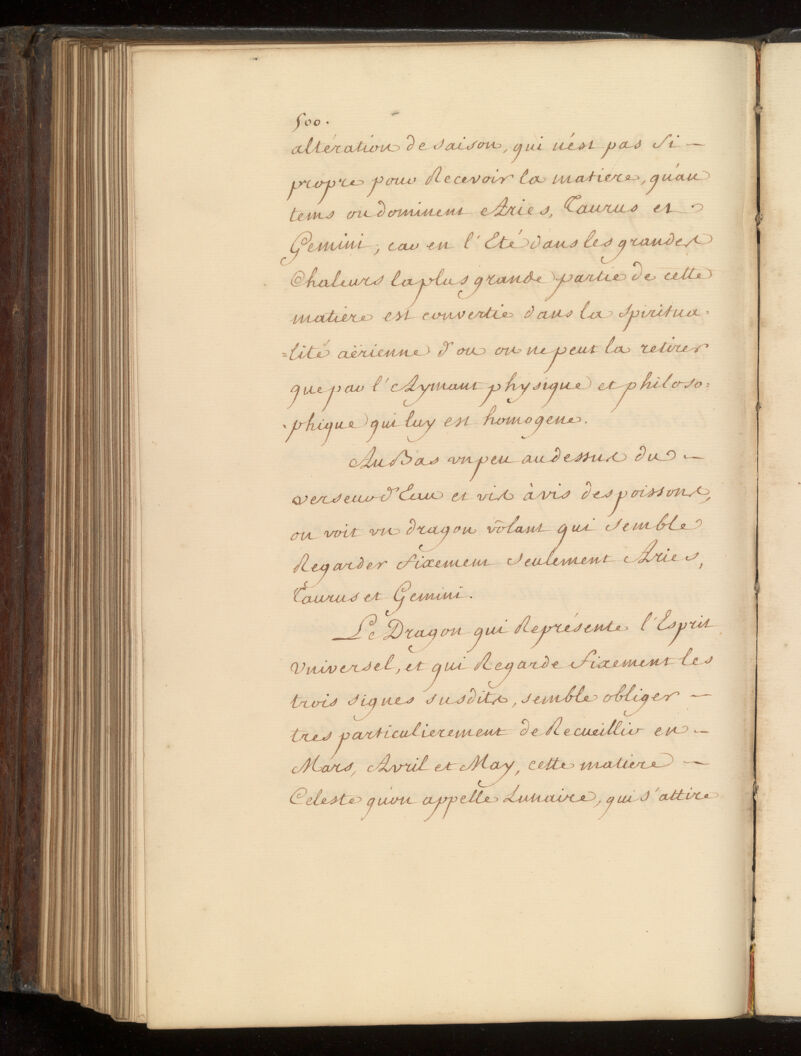 500.
altération de saison, qui n'ést pas si —
propre pour Recevoir la matiere, qu'au
tems ou dominent Aries, Taurus et
Gemini, car en l'Eté dans les grandes
Chaleurs la plus grande partie de cette
matiere est convertie dans la spiritua-
=lité aërienne d'ou on ne peut la retirer
que par l'Aymant physique et philoso=
-phique qui luy est homogene.
Au Bas un peu au dessus du —
verseur d'Eau et vis à vis des poissons,
on voit un dragon volant qui semble
Regarder fixement seulement Aries,
Taurus et Gemini.
Le Dragon qui Représente l'Esprit
Vniversel, et qui Regarde fixement les
trois signes susdits, semble obliger —
tres particulierement de Recueillir en —
Mars, Avril et May, cette matiere —
Celeste qu'on appelle Lunaire, qui s'attire